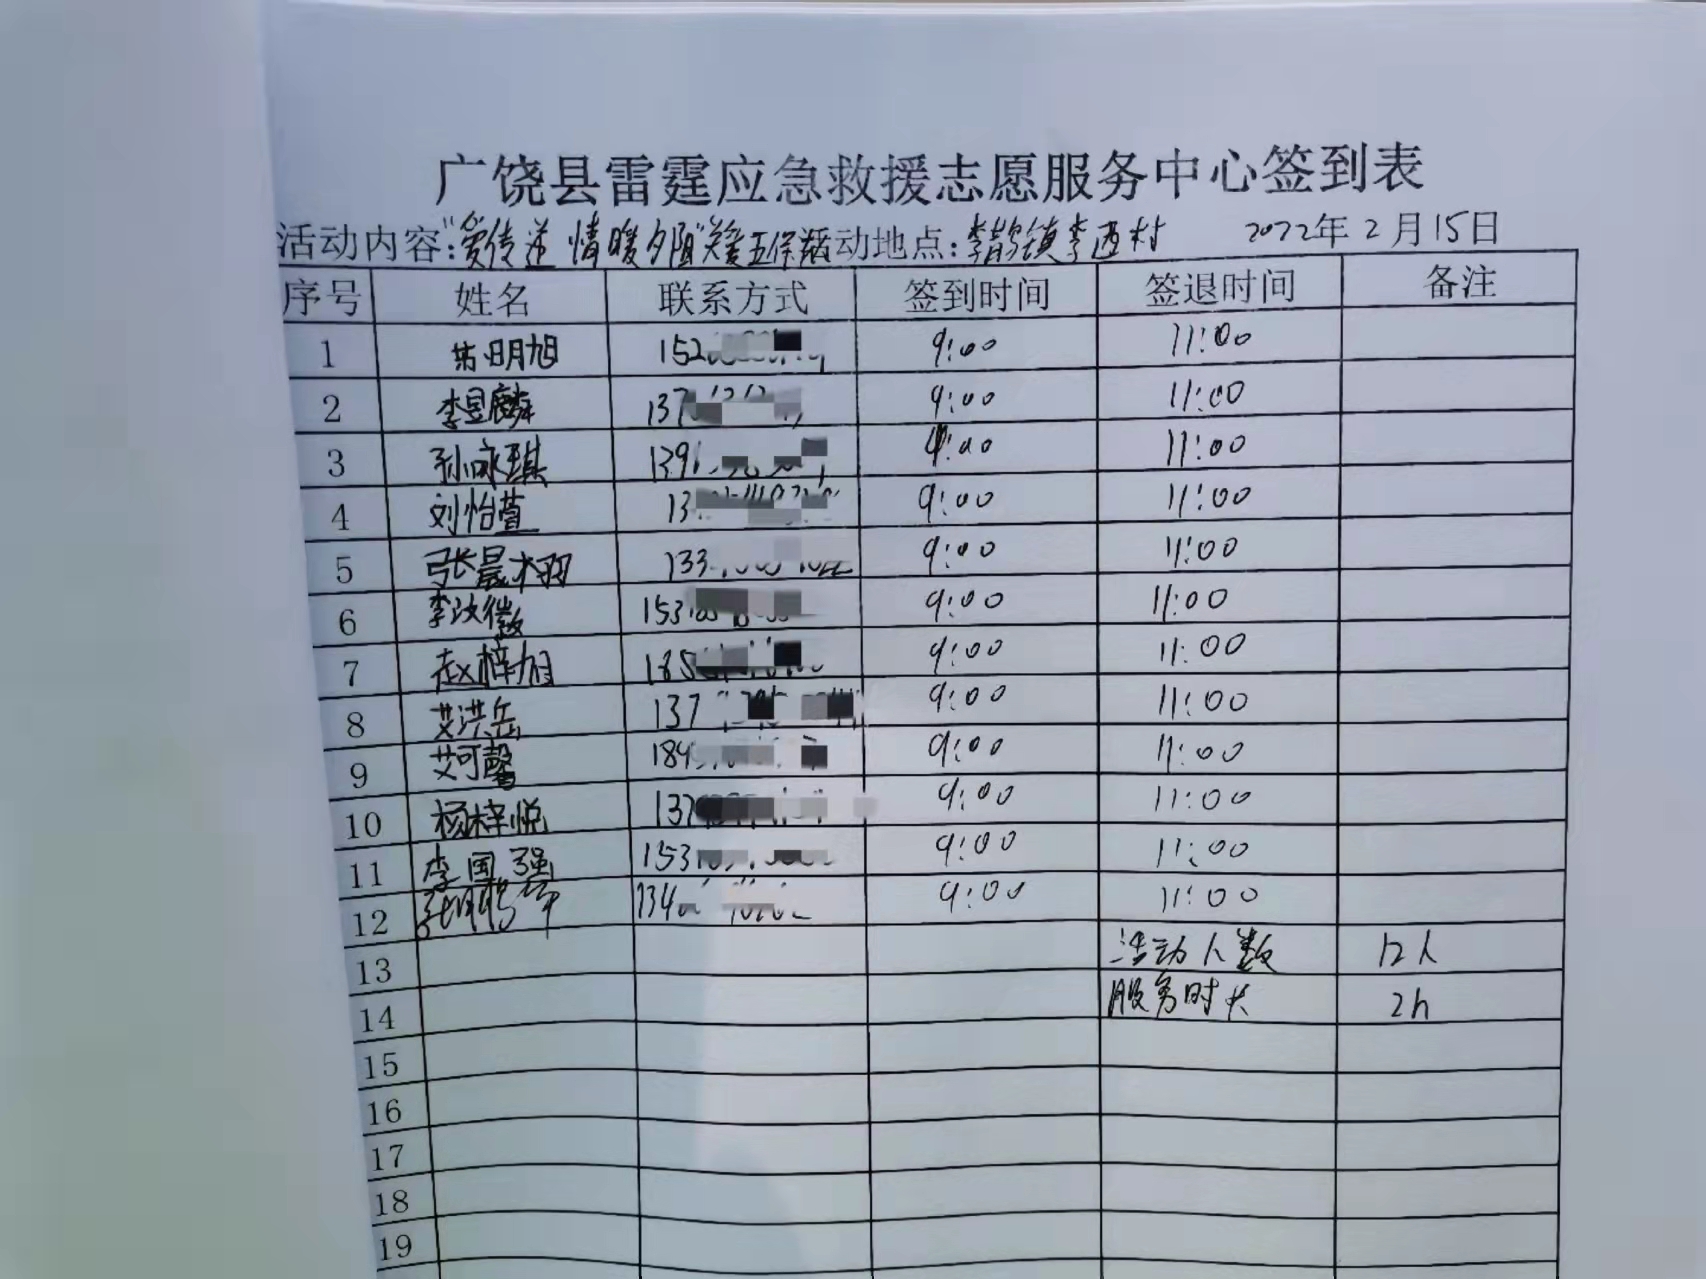 广饶县雷霆应急救援志愿服务中心签到表
活动内容:"爱传递 情暖夕阳"关爱五保活动 活动地点:李鹊镇李西村 2022年2月15日
序号 姓名 联系方式 签到时间 签退时间 备注
1 明旭 152 9:00 11:00
2 李昱麟 137 9:00 11:00
3 孙咏琪 139 9:00 11:00
4 刘怡萱 13 9:00 11:00
5 张晨栩 133 9:00 11:00
6 李汶徽 153 9:00 11:00
7 赵梓旭 185 9:00 11:00
8 艾洪岳 137 9:00 11:00
9 艾可馨 184 9:00 11:00
10 杨梓悦 137 9:00 11:00
11 李国强 153 9:00 11:00
12 134 9:00 11:00
13 活动人数 12人
14 服务时长 2h
15
16
17
18
19